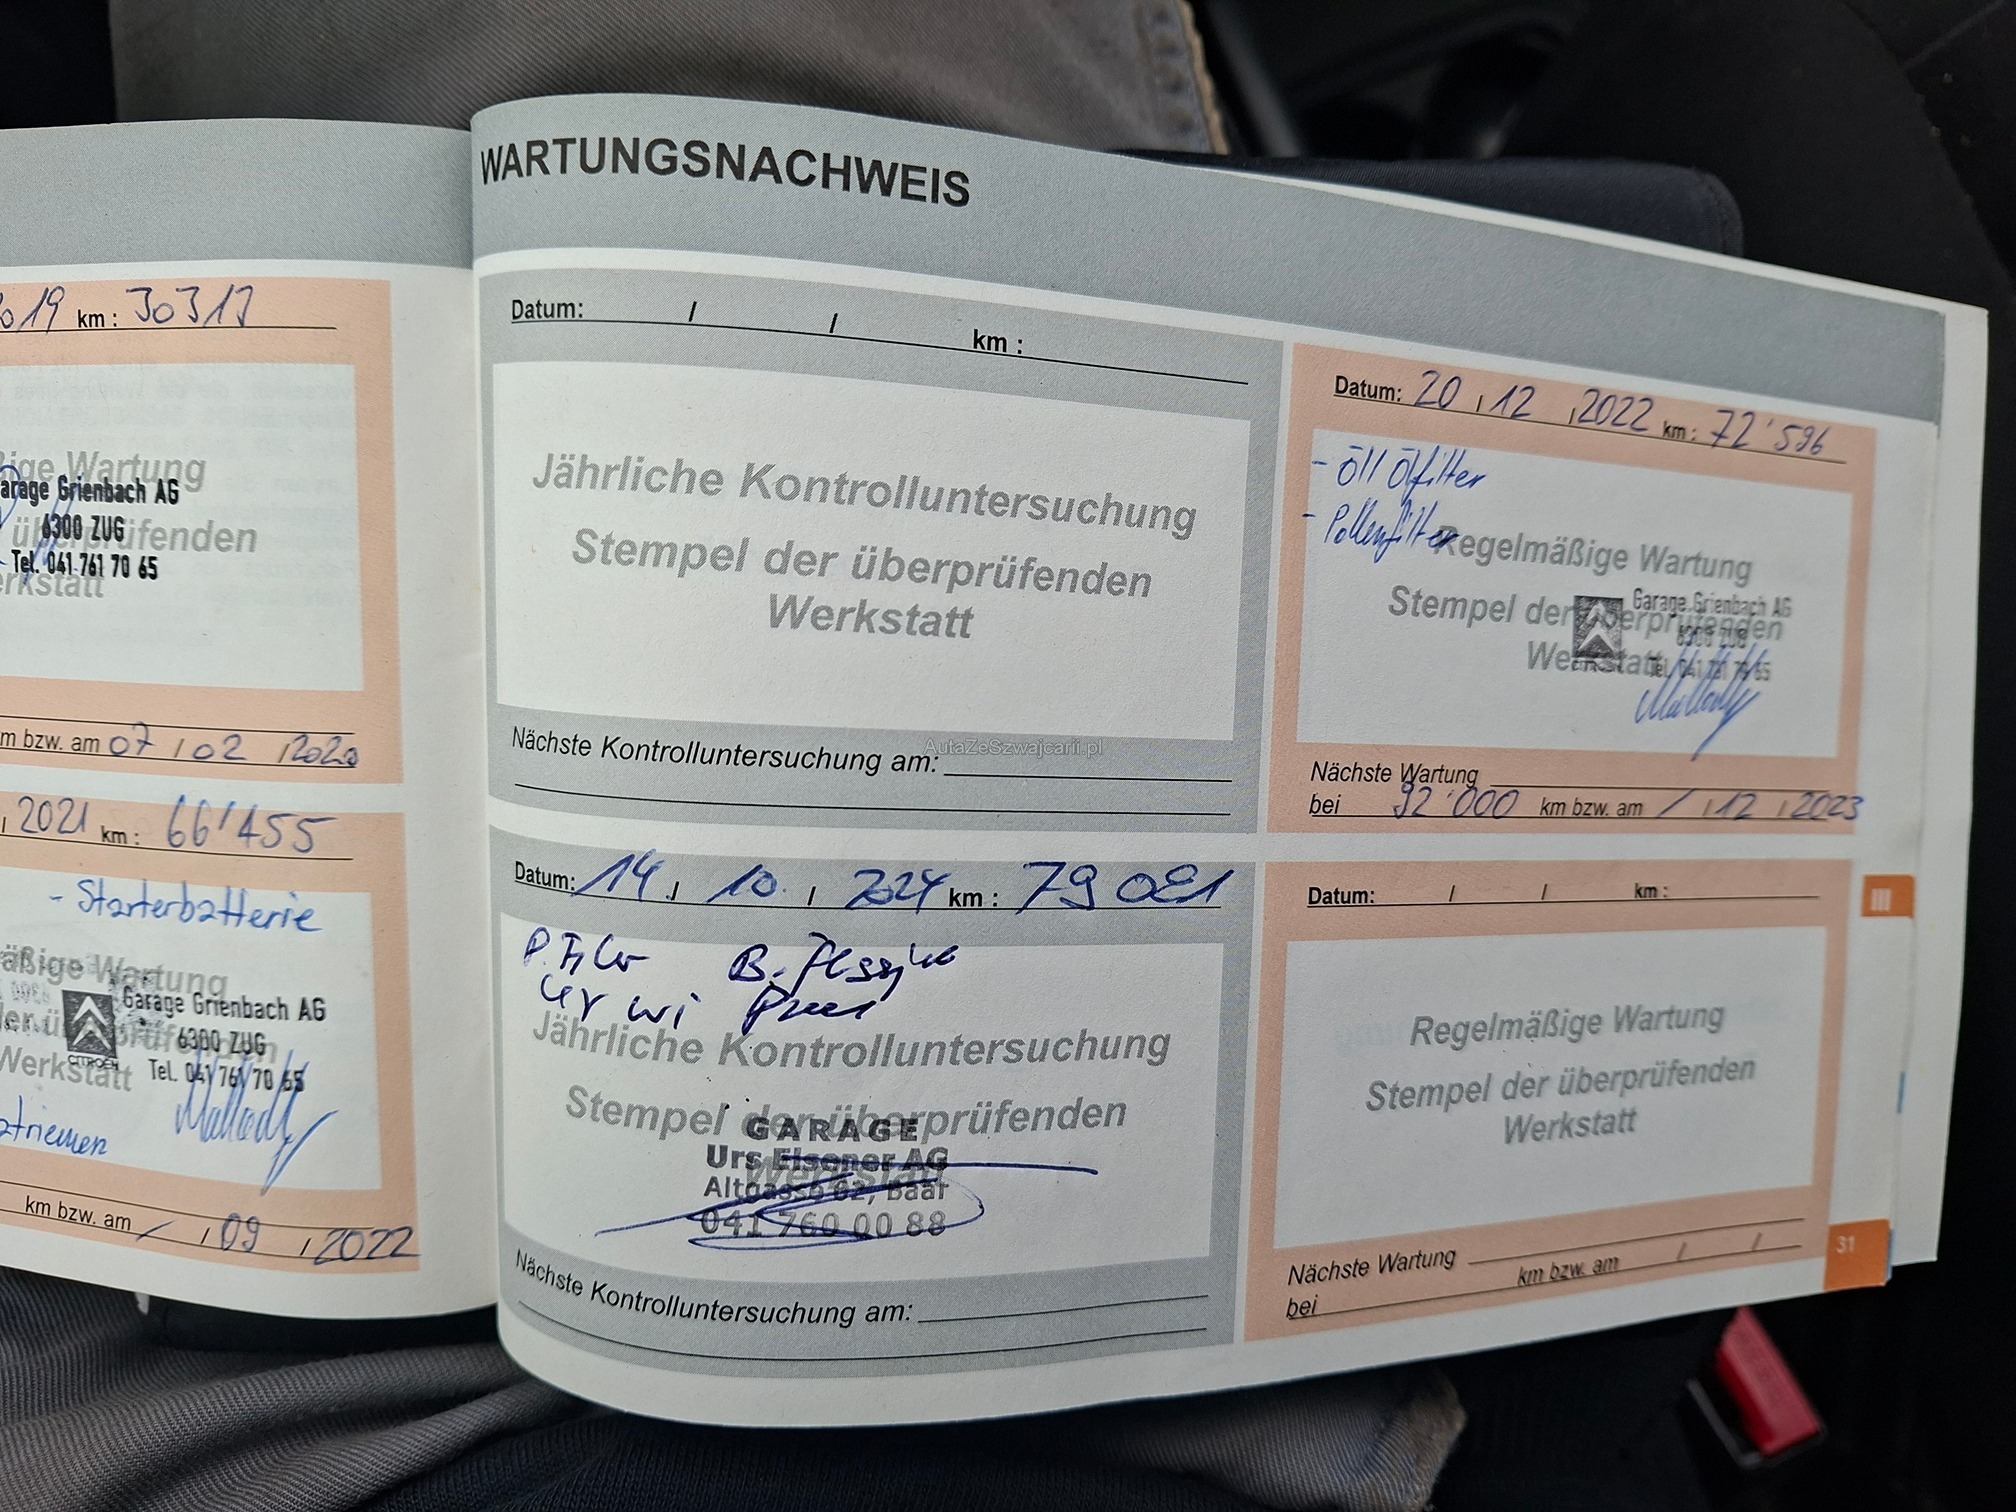 2019 km : 30313
ige Wartung
Garage Grienbach AG
6300 ZUG
überprüfenden
Tel. 041 761 70 65
erkstatt
m bzw. am 07 / 02 / 2020
, 2021 km : 66'455
- Starterbatterie
äßige Wartung
Garage Grienbach AG
6300 ZUG
CITROËN
Werkstatt Tel. 041 761 70 65
triemen
km bzw. am / / 09 / 2022
WARTUNGSNACHWEIS
Datum: / / km :
Jährliche Kontrolluntersuchung
Stempel der überprüfenden
Werkstatt
Nächste Kontrolluntersuchung am:
AutaZeSzwajcarii.pl
Datum: 20 / 12 / 2022 km : 72'596
- Öll Ölfilter
- Pollenfilter
Regelmäßige Wartung
Garage Grienbach AG
Stempel der überprüfenden
6300 ZUG
Werkstatt Tel. 041 761 70 65
Nächste Wartung
bei 92'000 km bzw. am / / 12 / 2023
Datum: 14. / 10. / 2024 km : 79 021
Jährliche Kontrolluntersuchung
Stempel der überprüfenden
GARAGE
Urs Elsener AG
Werkstatt
Altgasse 62, Baar
041 760 00 88
Nächste Kontrolluntersuchung am:
Datum: / / km :
Regelmäßige Wartung
Stempel der überprüfenden
Werkstatt
Nächste Wartung
bei km bzw. am / /
III
31